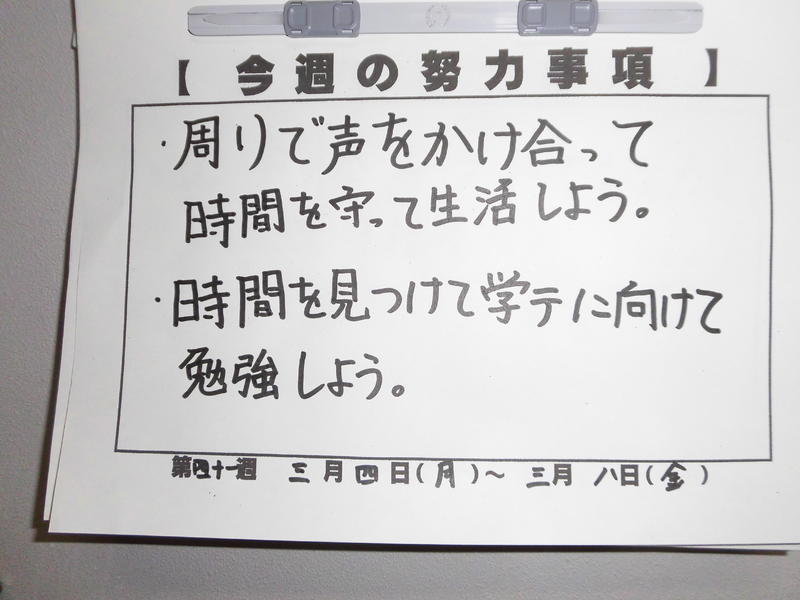 【今週の努力事項】
・周りで声をかけ合って
時間を守って生活しよう。
・時間を見つけて学テに向けて
勉強しよう。
第四十一週 三月四日(月)～三月八日(金)